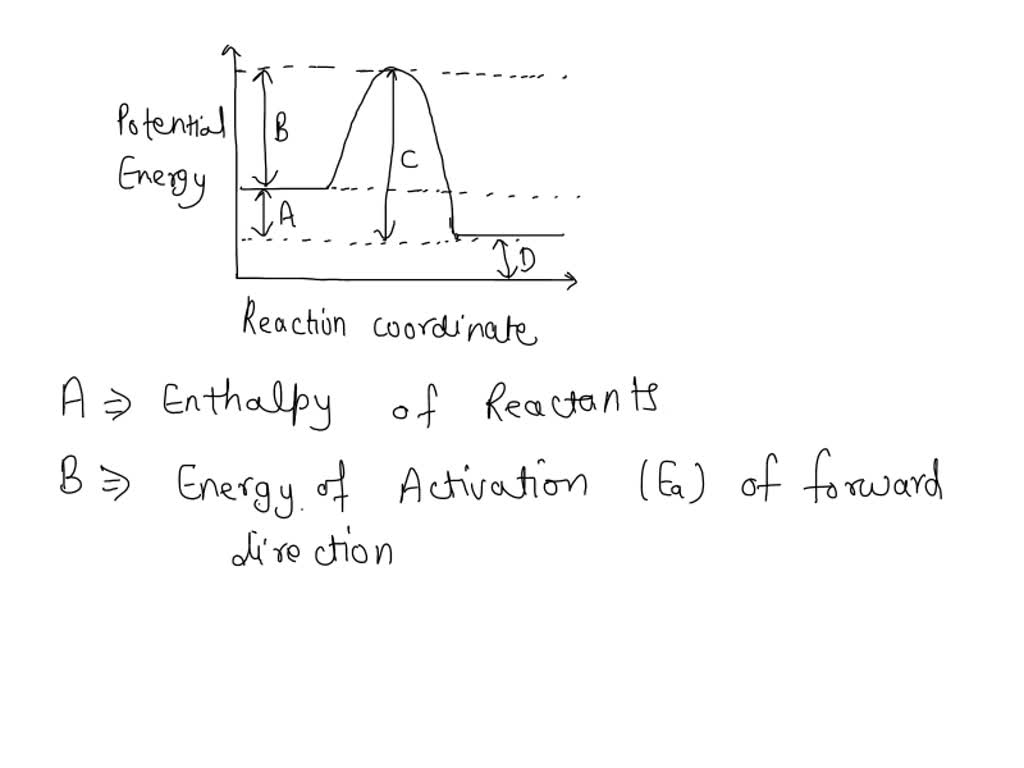 Potential
Energy
B
C
A
D
Reaction coordinate
A ⇒ Enthalpy of Reactants
B ⇒ Energy of Activation (Ea) of forward
direction